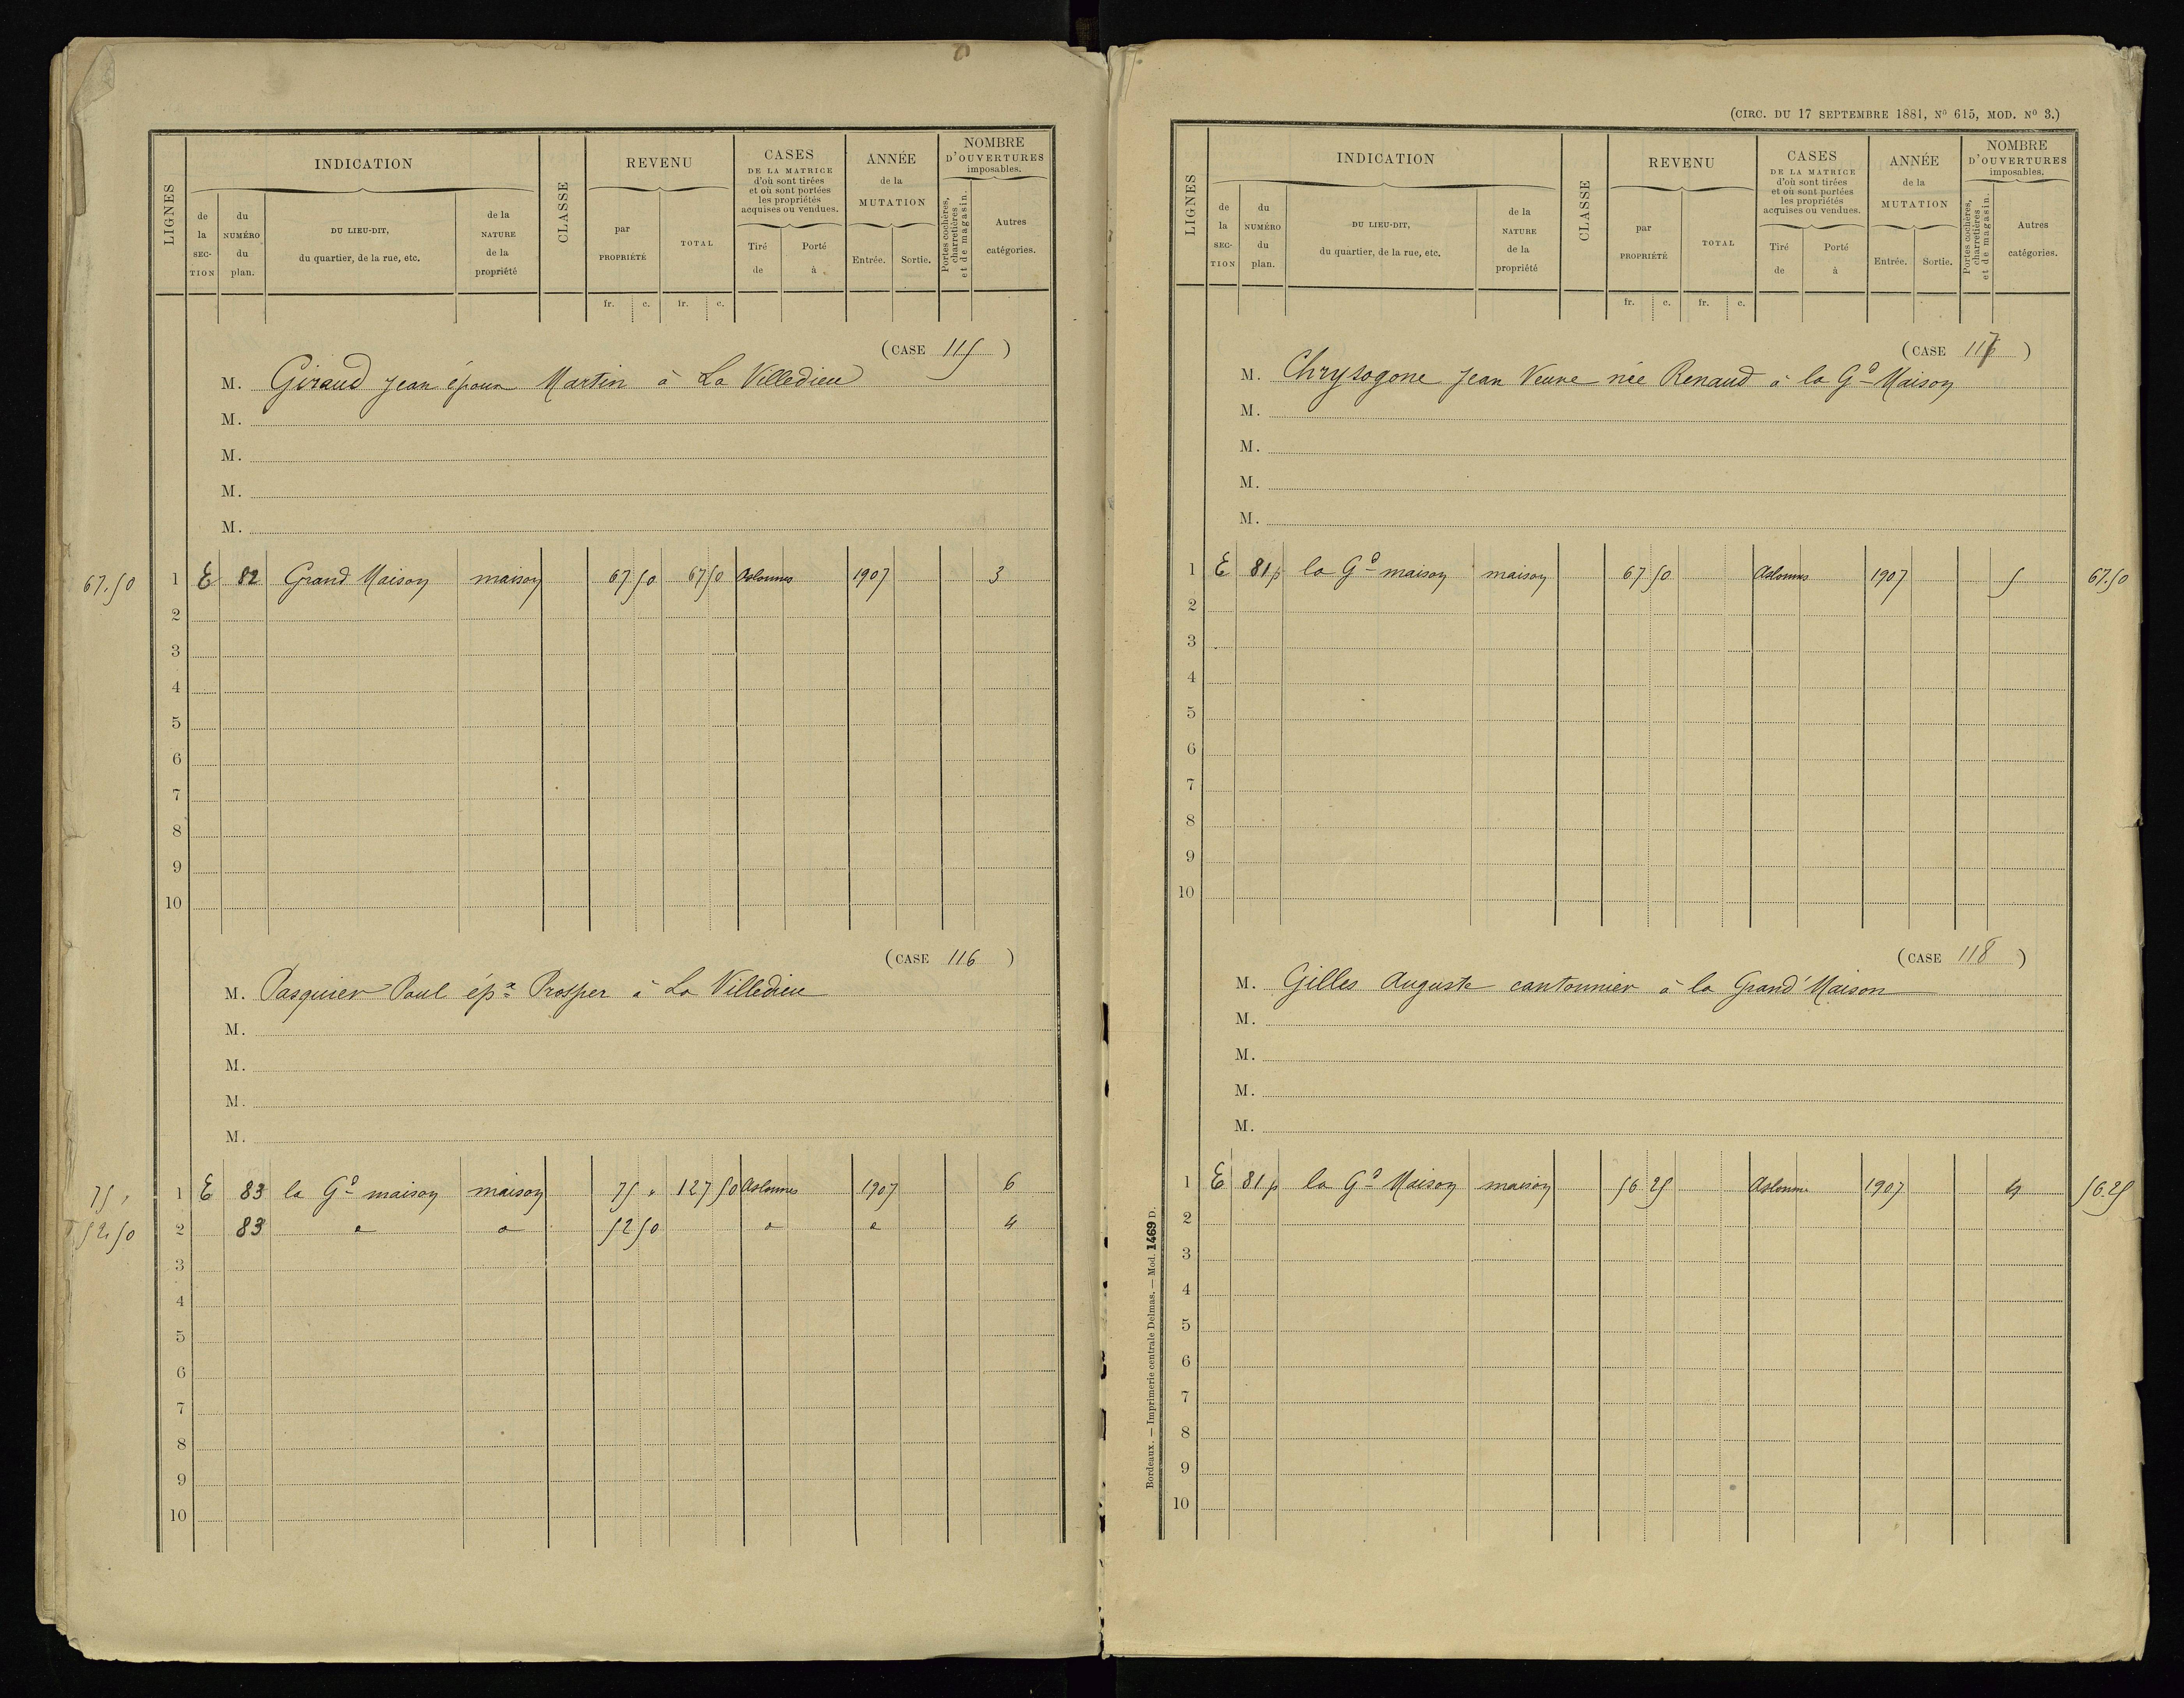 LIGNES
INDICATION
de la SECTION
du NUMÉRO du plan.
DU LIEU-DIT, du quartier, de la rue, etc.
de la NATURE de la propriété
CLASSE
REVENU
par PROPRIÉTÉ
TOTAL
CASES DE LA MATRICE d'où sont tirées et où sont portées les propriétés acquises ou vendues.
Tiré de
Porté à
ANNÉE de la MUTATION
Entrée.
Sortie.
NOMBRE D'OUVERTURES imposables.
Portes cochères, charretières et de magasin.
Autres catégories.
fr. c. fr. c.
(CASE 115)
M. Giraud Jean époux Martin à La Villedieu
M.
M.
M.
M.
67.50 1 E 82 Grand Maison maison 67 50 67 50 Aslonnes 1907 3
2
3
4
5
6
7
8
9
10
(CASE 116)
M. Pasquier Paul épx Prosper à La Villedieu
M.
M.
M.
M.
75 " 1 E 83 la Gd maison maison 75 " 127 50 Aslonnes 1907 6
52,50 2 83 " " 52 50 " " 4
3
4
5
6
7
8
9
10
(CIRC. DU 17 SEPTEMBRE 1881, No 615, MOD. No 3.)
LIGNES
INDICATION
de la SECTION
du NUMÉRO du plan.
DU LIEU-DIT, du quartier, de la rue, etc.
de la NATURE de la propriété
CLASSE
REVENU
par PROPRIÉTÉ
TOTAL
CASES DE LA MATRICE d'où sont tirées et où sont portées les propriétés acquises ou vendues.
Tiré de
Porté à
ANNÉE de la MUTATION
Entrée.
Sortie.
NOMBRE D'OUVERTURES imposables.
Portes cochères, charretières et de magasin.
Autres catégories.
fr. c. fr. c.
(CASE 117)
M. Chrysogone Jean Veuve née Renaud à la Gd Maison
M.
M.
M.
M.
1 E 81p la Gd maison maison 67 50 Aslonnes 1907 5 67.50
2
3
4
5
6
7
8
9
10
(CASE 118)
M. Gilles Auguste cantonnier à la Grand'Maison
M.
M.
M.
M.
1 E 81p la Gd Maison maison 56 25 Aslonnes 1907 4 56.25
2
3
4
5
6
7
8
9
10
Bordeaux. — Imprimerie centrale Delmas. — Mod. 1469 D.